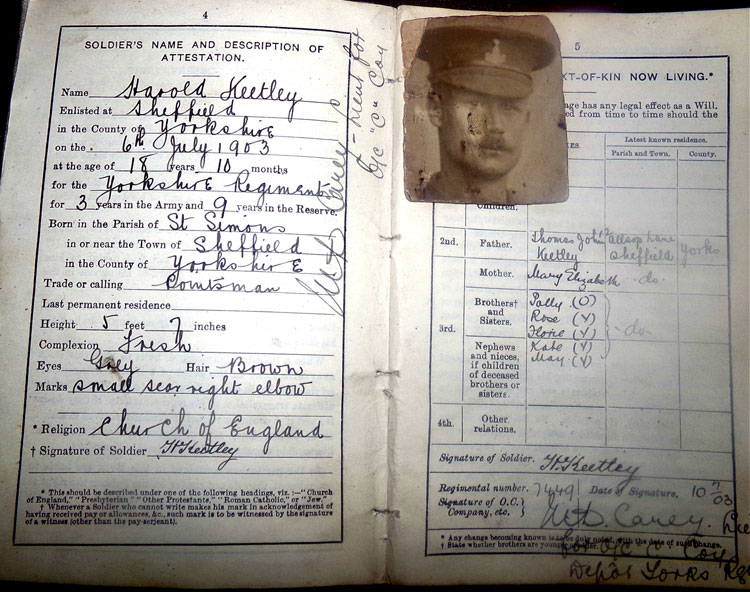 4
SOLDIER'S NAME AND DESCRIPTION OF
ATTESTATION.
Name Harold Keetley
Enlisted at Sheffield
in the County of Yorkshire
on the 6th July 1903
at the age of 18 years 10 months
for the Yorkshire Regiment
for 3 years in the Army and 9 years in the Reserve.
Born in the Parish of St Simons
in or near the Town of Sheffield
in the County of Yorkshire
Trade or calling Pointsman
Last permanent residence
Height 5 feet 7 inches
Complexion Fresh
Eyes Grey Hair Brown
Marks small scar right elbow
* Religion Church of England
† Signature of Soldier H Keetley
* This should be described under one of the following headings, viz.:—"Church
of England," "Presbyterian" "Other Protestants," "Roman Catholic," or "Jew."
† Whenever a Soldier who cannot write makes his mark in acknowledgement of
having received pay or allowances, &c., such mark is to be witnessed by the signature
of a witness (other than the pay-serjeant).
Carey - Lieut for
O/C "C" Coy
5
XT-OF-KIN NOW LIVING.*
age has any legal effect as a Will,
ed from time to time should the
Latest known residence.
Parish and Town. County.
Children.
2nd. Father. Thomas John Allsop Lane Yorks
Keetley Sheffield
Mother. Mary Elizabeth -do-
3rd.
Brothers†
and
Sisters.
Polly (O)
Rose (Y)
Florie (Y)
Kate (Y)
May (Y)
-do-
Nephews
and nieces,
if children
of deceased
brothers or
sisters.
4th. Other
relations.
Signature of Soldier. H Keetley
Regimental number. 7449 Date of Signature, 10/7/03
Signature of O.C.
Company, etc. Carey. Lieu
for O/C "C" Coy
Depôt Yorks Regt
* Any change becoming known is to be duly noted, with the date of such change.
† State whether brothers are younger or older.